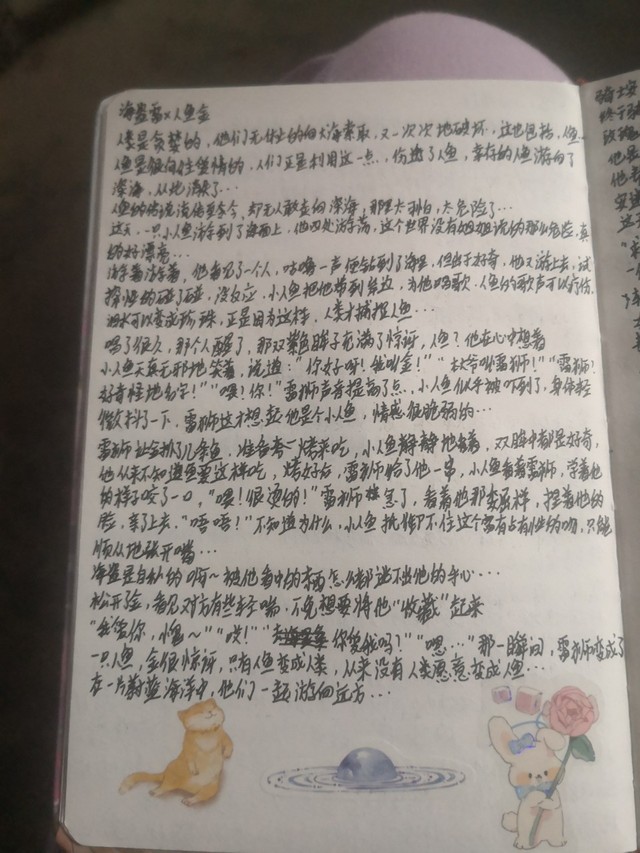 海盗雷×人鱼金
人类是贪婪的，他们无休止的向大海索取，又一次次地破坏，这也包括，鱼
人鱼是很向往爱情的，人们正是利用这一点，伤透了人鱼，幸存的人鱼游向了
深海，从此消失了…
人鱼的传说流传至今，却无人敢走向深海，那里太利白，太危险了…
这天，一只小人鱼游到了海面上，他四处游荡，这个世界没有姐姐说的那么危险，真
的好漂亮…
游着游着，他看见了一个人，咕噜一声便钻到了海里，但出于好奇，他又游上去，试
探性的碰了碰，没反应，小人鱼把他带到岸边，为他唱歌，人鱼的歌声可以疗伤，
泪水可以变成珍珠，正是因为这样，人类才捕捉人鱼…
唱了很久，那个人醒了，那双紫色眸子充满了惊讶，人鱼？他在心中想着
小人鱼天真无邪地笑着，说道："你好呀！我叫金！""本大爷叫雷狮！""雷狮？
好奇怪地名字！""喂！你！"雷狮声音提高了点，小人鱼似乎被吓到了，身体轻
微抖了一下，雷狮这才想起他是个小人鱼，情感很脆弱的…
雷狮让金抓了几条鱼，准备烤一烤来吃，小人鱼静静地看着，双眸中都是好奇，
他从来不知道鱼要这样吃，烤好后，雷狮给了他一串，小人鱼看着雷狮，学着他
的样子咬了一口，"嗯！很烫的！"雷狮 怎了，看着他那委屈样，捏着他的
脸，亲了上去，"唔唔！"不知道为什么，小人鱼抵御不住这个富有占有性的吻，只能
顺从地张开嘴…
海盗是自私的啊～被他看中的东西怎么都逃不出他的手心…
松开金，看见对方有些轻喘，不免想要将他"收藏"起来
"我爱你，小鱼～""哎！""你爱我吗？""嗯…"那一瞬间，雷狮变成了
一只人鱼，金很惊讶，只有人鱼变成人类，从来没有人类愿意变成人鱼…
在一片蔚蓝海洋中，他们一起游向远方…